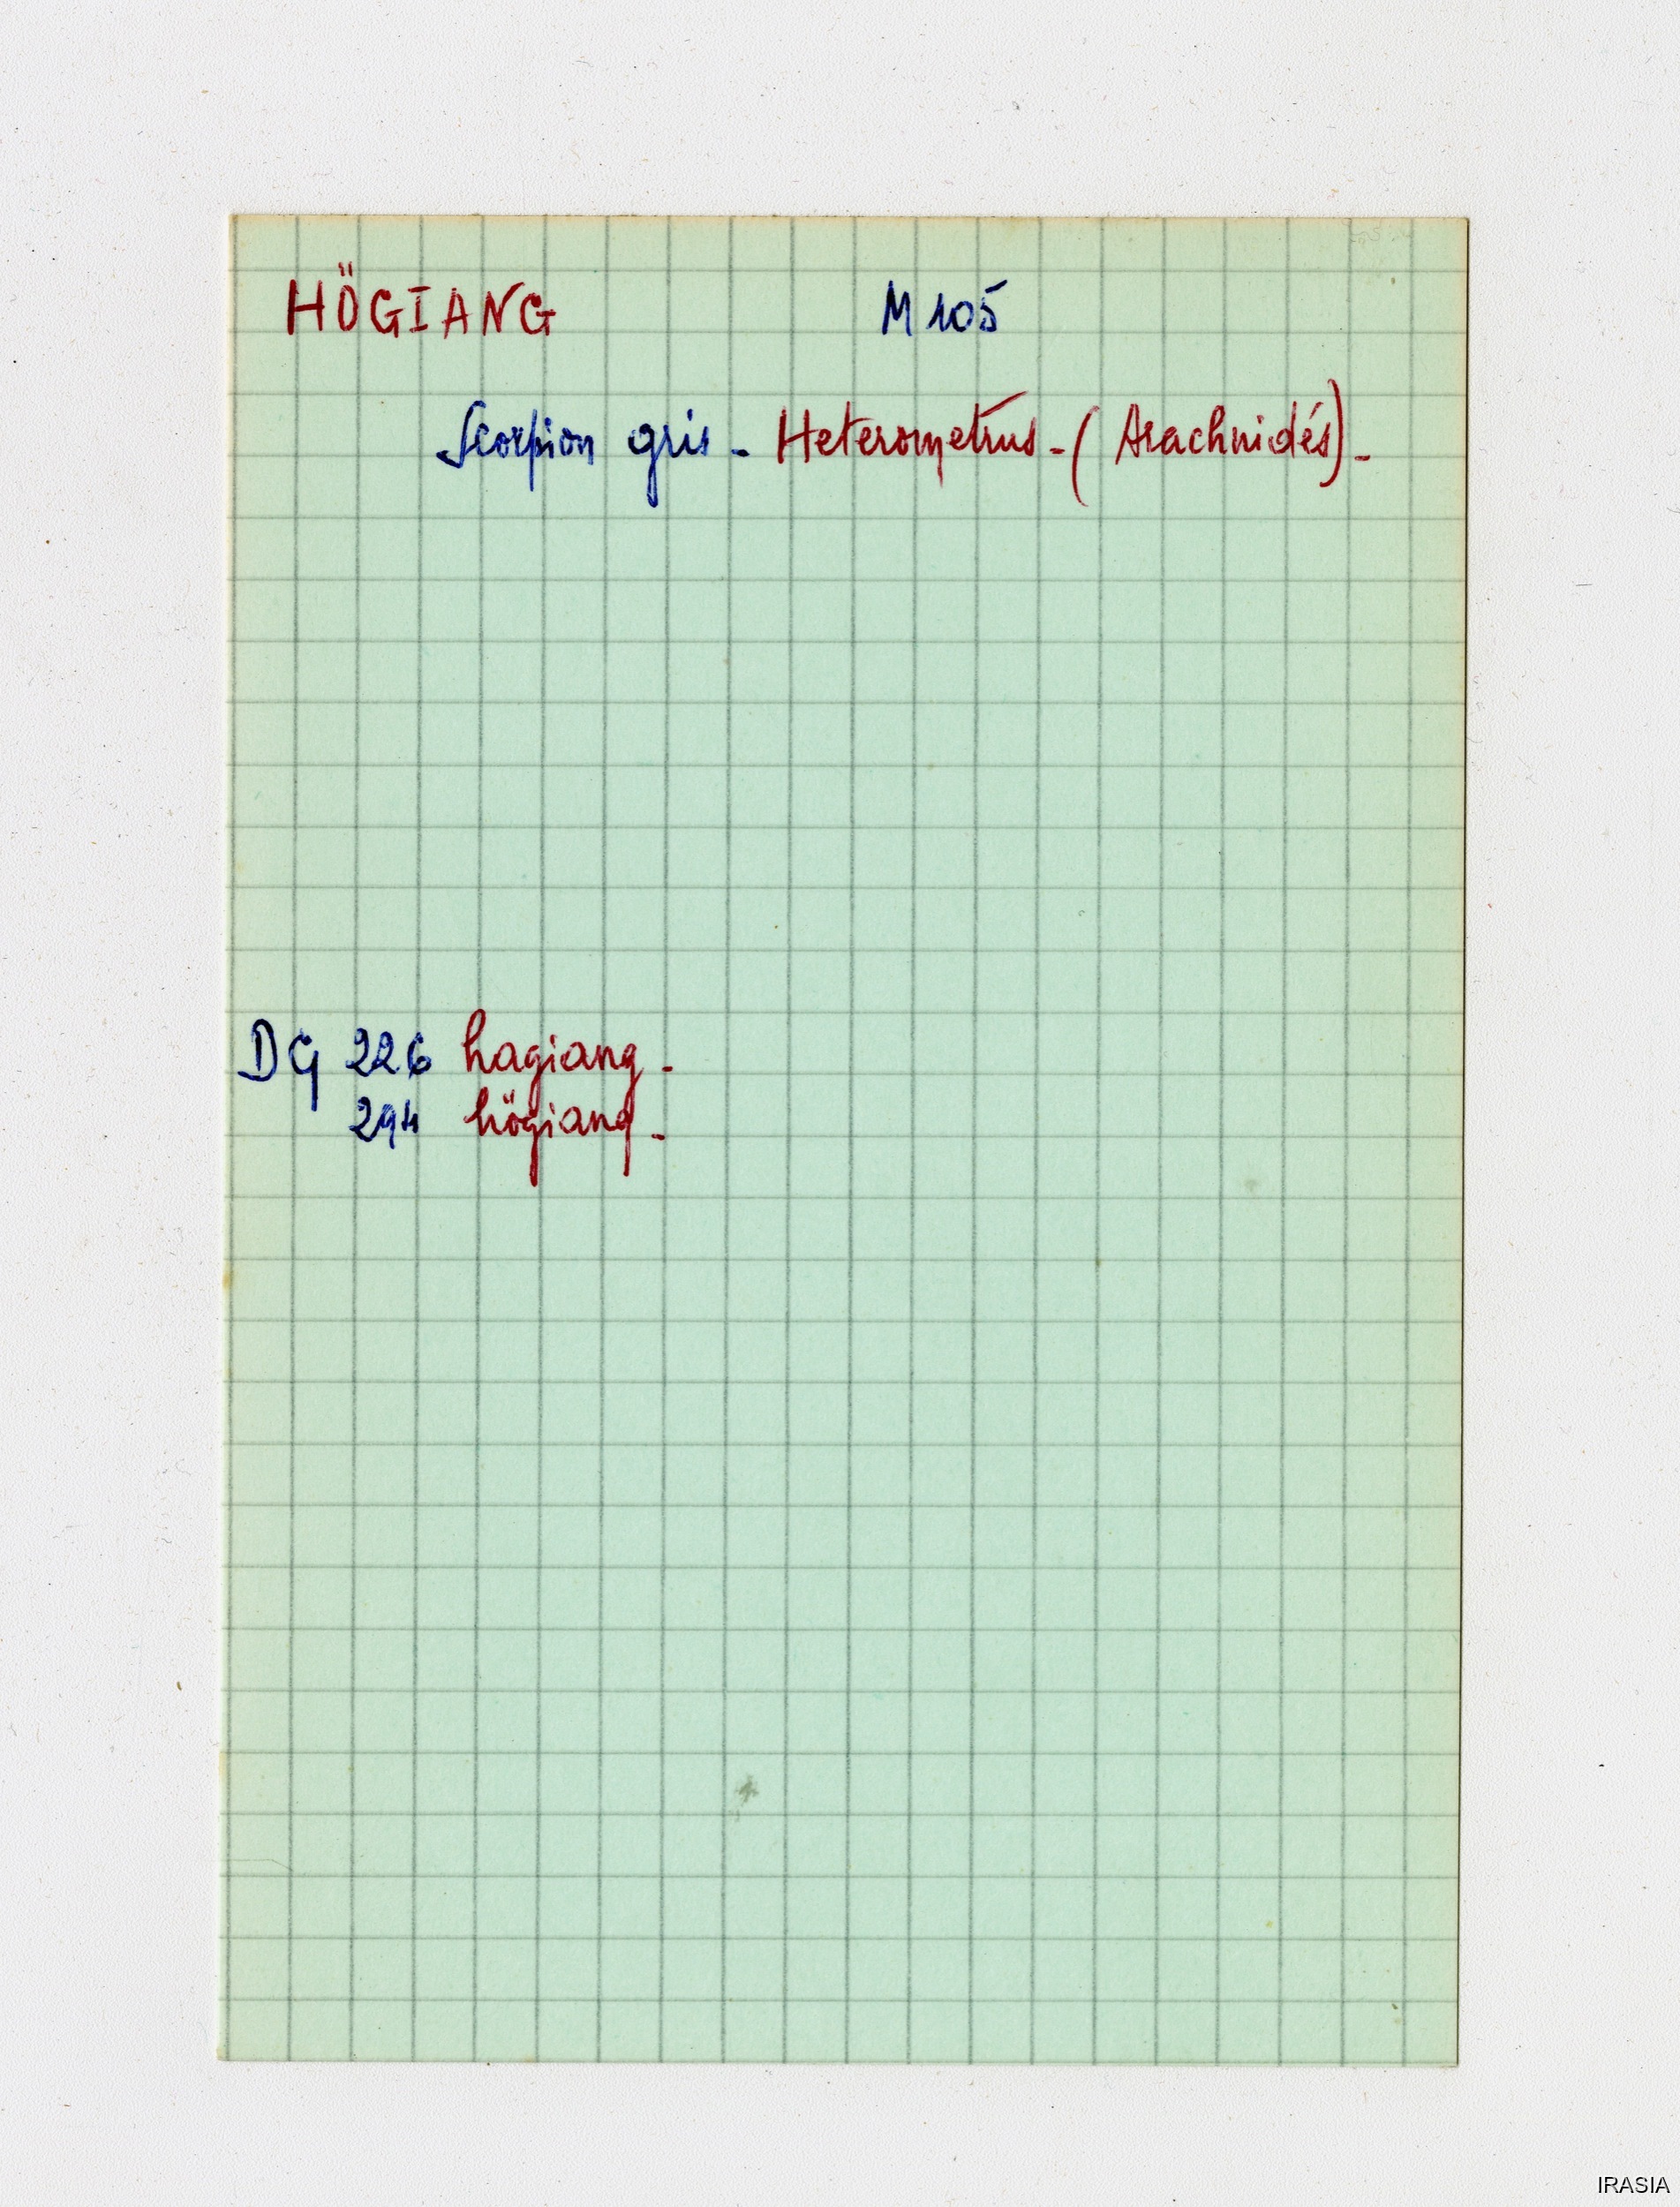 HÖGIANG M 105
Scorpion gris - Heterometrus - (Arachnidés) -
DG 226 hagiang -
294 högiang -
IRASIA